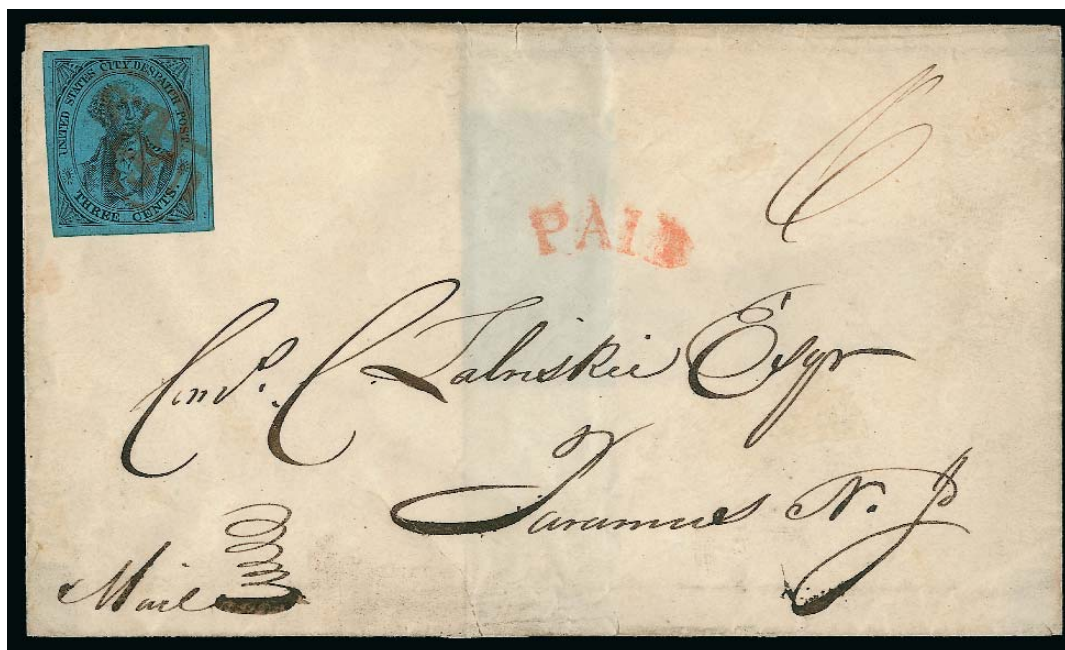 UNITED STATES CITY DESPATCH POST
THREE CENTS.
6
PAID
C. Zabriskie Esqr
Paramus N. J.
Mail